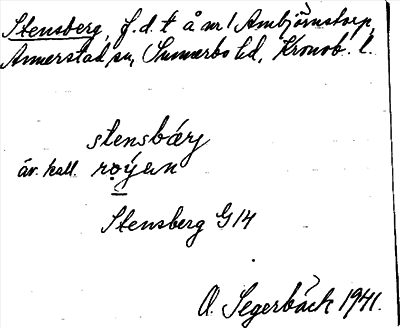 Stensberg, f.d. t å nr 1 Ambjörnstorp,
Annerstad sn, Sunnerbo hd, Kronob. l.
stensbærj
äv. kall. røýen
Stensberg G14
O. Segerbäck 1941.